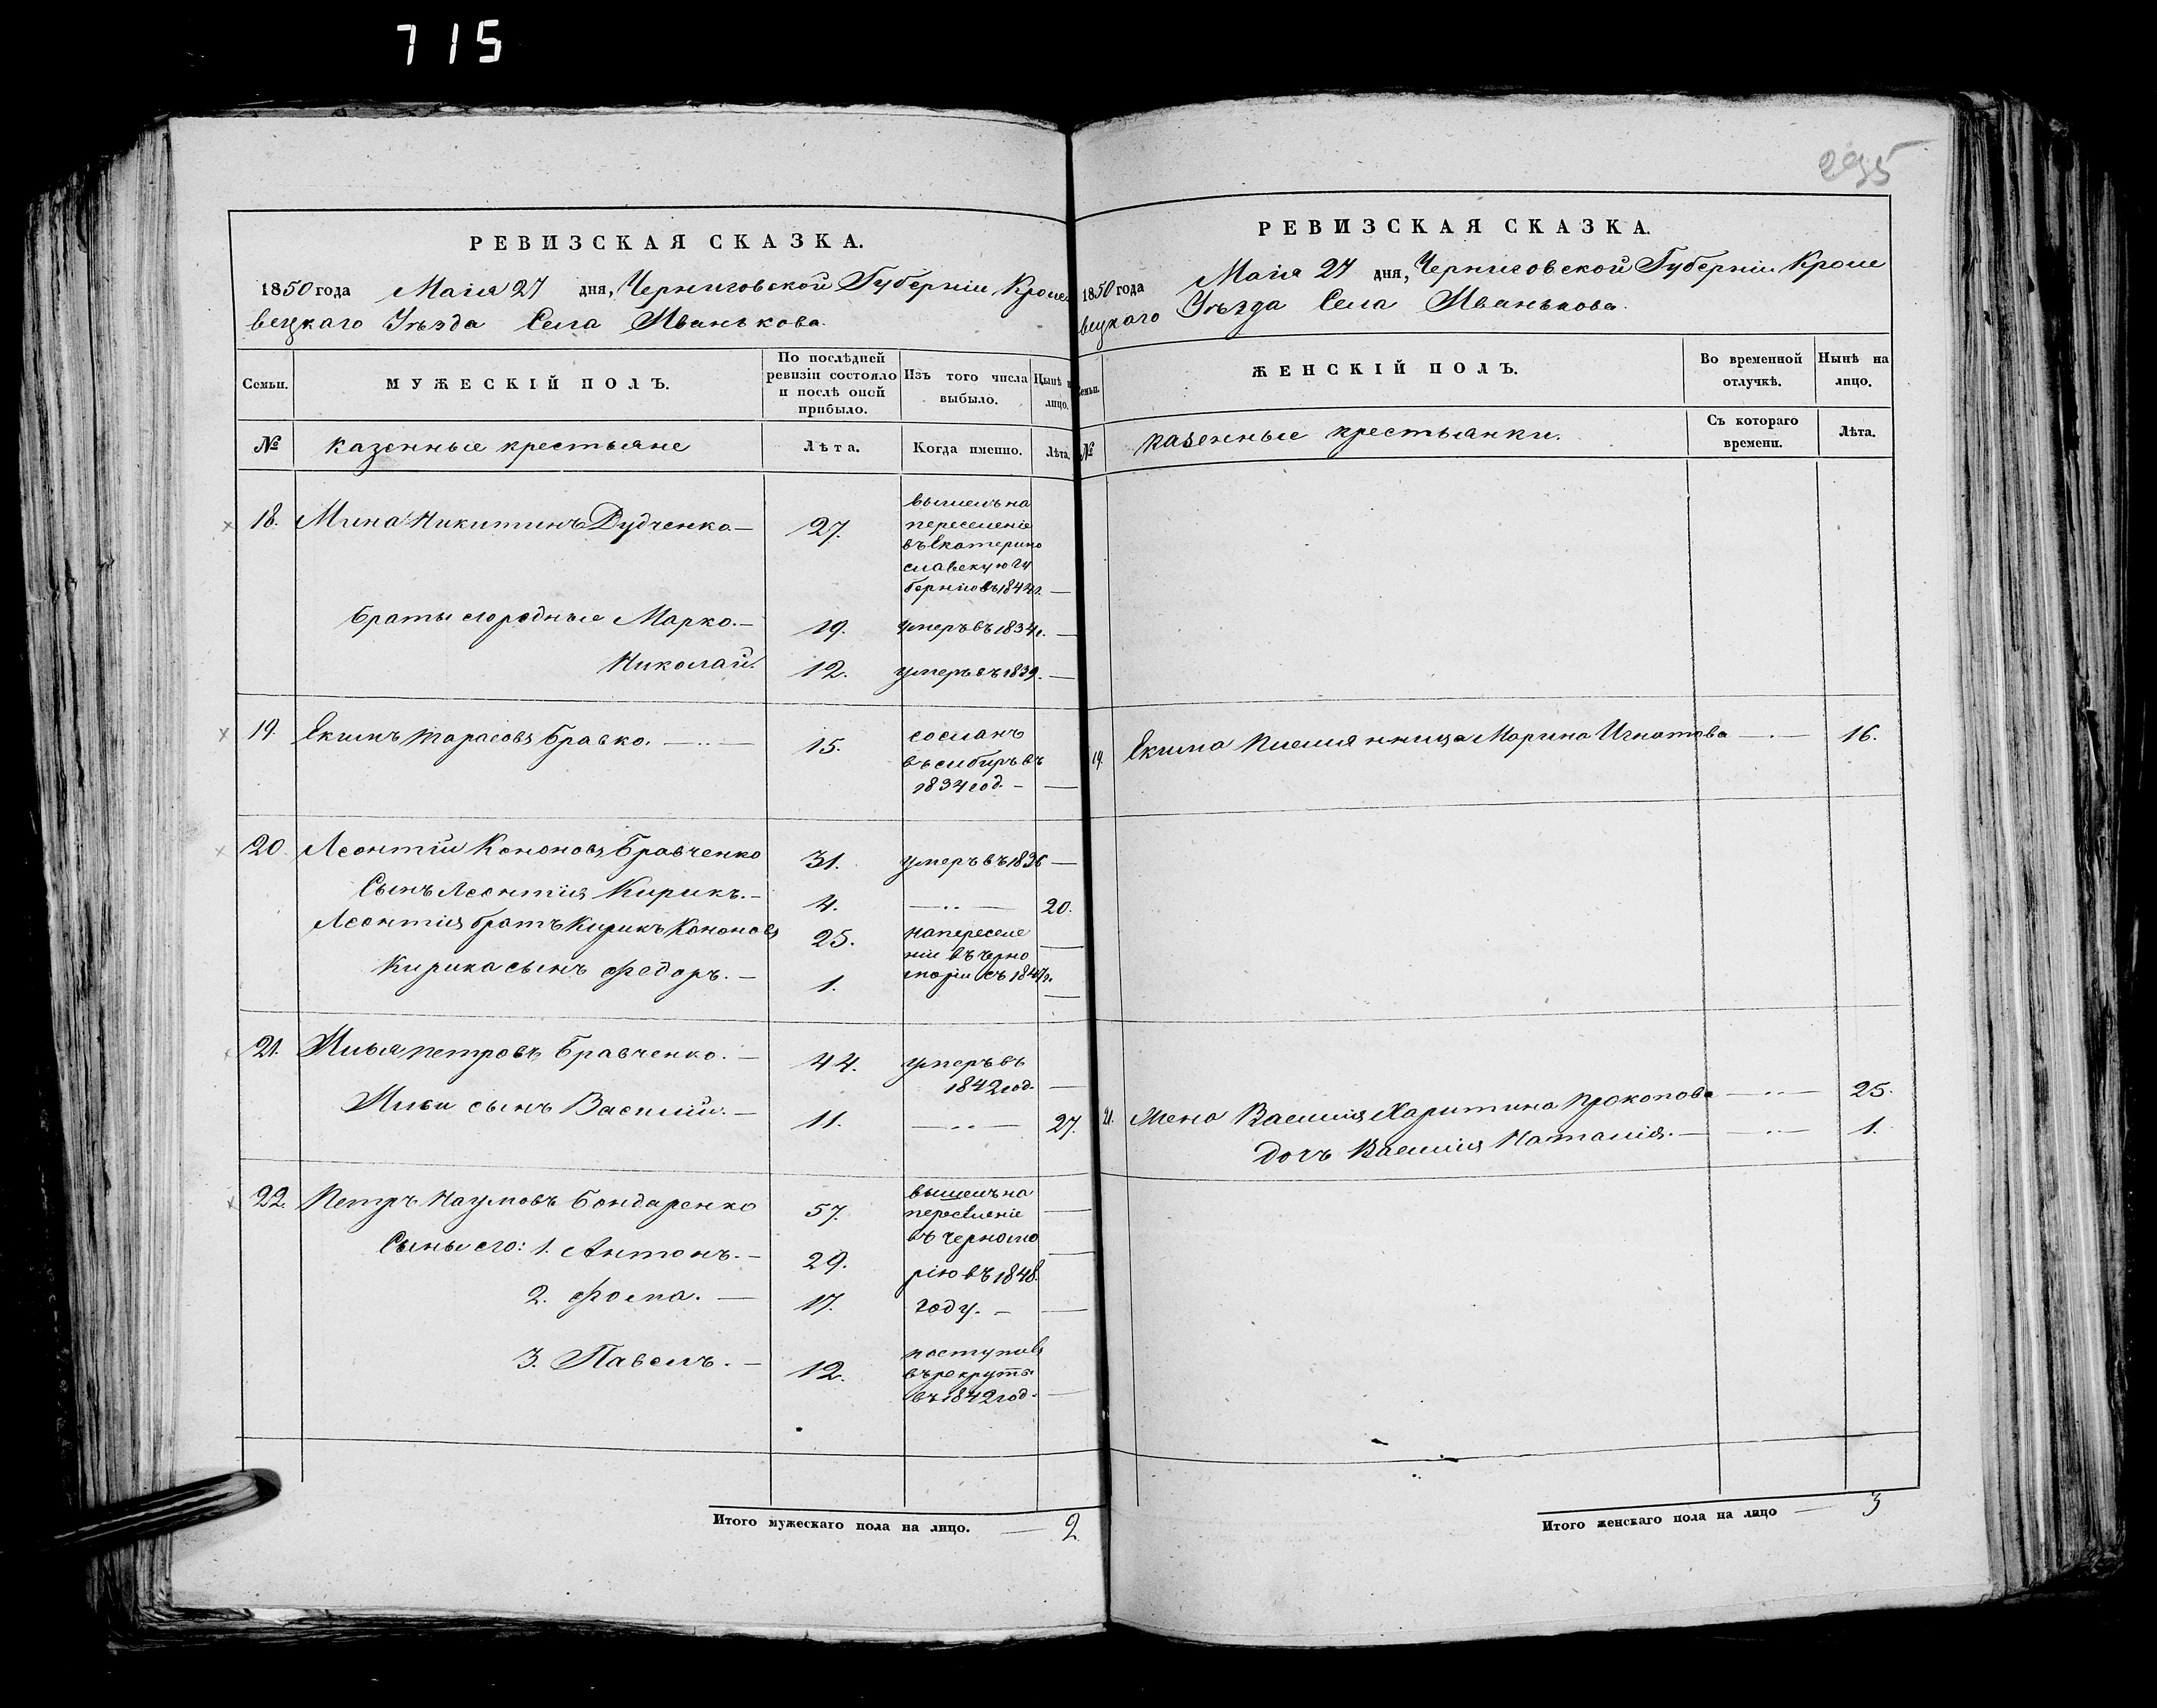 715
295
РЕВИЗСКАЯ СКАЗКА.
1850 года Маія 27 дня, Черниговской Губерніи Кроле
вецкаго Уѣзда Села Иванькова.
Семьи.
МУЖЕСКІЙ ПОЛЪ.
По послѣдней ревизіи состояло и послѣ оной прибыло.
Изъ того числа выбыло.
Нынѣ на лицо.
№
казенные крестьяне
Лѣта.
Когда именно.
Лѣта.
18. Мина Никитинъ Дудченко — 27. вышелъ на
переселеніе
въ Екатерино
славскую гу
бернію въ 1844 г. —
браты сородные Марко. — 19. умеръ въ 1834 г. —
Николай. 12. умеръ въ 1839. —
19. Екимъ Тарасовъ Бравко. — 15. сосланъ
въ сибирь въ
1834 год. — —
20 Леонтій Кононовъ Бравченко 31. умеръ въ 1836 —
Сынъ Леонтія Кирикъ. — 4. — 20.
Леонтія братъ Кирикъ Кононовъ 25. на переселе
ніи въ черно
Кирика сынъ Федоръ. — 1. моріи съ 1847 г. —
21. Илья Петровъ Бравченко. — 44. умеръ въ
1842 год. —
Ильи сынъ Василій. — 11. — 27.
22. Петръ Наумовъ Бондаренко 57. вышелъ на
переселеніе —
въ черномо
Сыны его: 1. Антонъ. — 29. рію въ 1848. —
2. Фома. — 17. году. — —
3. Павелъ. — 12. поступилъ
въ рекруты
въ 1842 год. —
Итого мужескаго пола на лицо. — 2
РЕВИЗСКАЯ СКАЗКА.
1850 года Маія 27 дня, Черниговской Губерніи Кроле
вецкаго Уѣзда Села Иванькова.
Семьи.
ЖЕНСКІЙ ПОЛЪ.
Во временной отлучкѣ.
Нынѣ на лицо.
№
казенные крестьянки.
Съ котораго времени.
Лѣта.
19. Екима племянница Марина Игнатова — 16.
21. Жена Василія Харитина Прокопова — 25.
дочь Василія Наталія. — 1.
Итого женскаго пола на лицо — 3